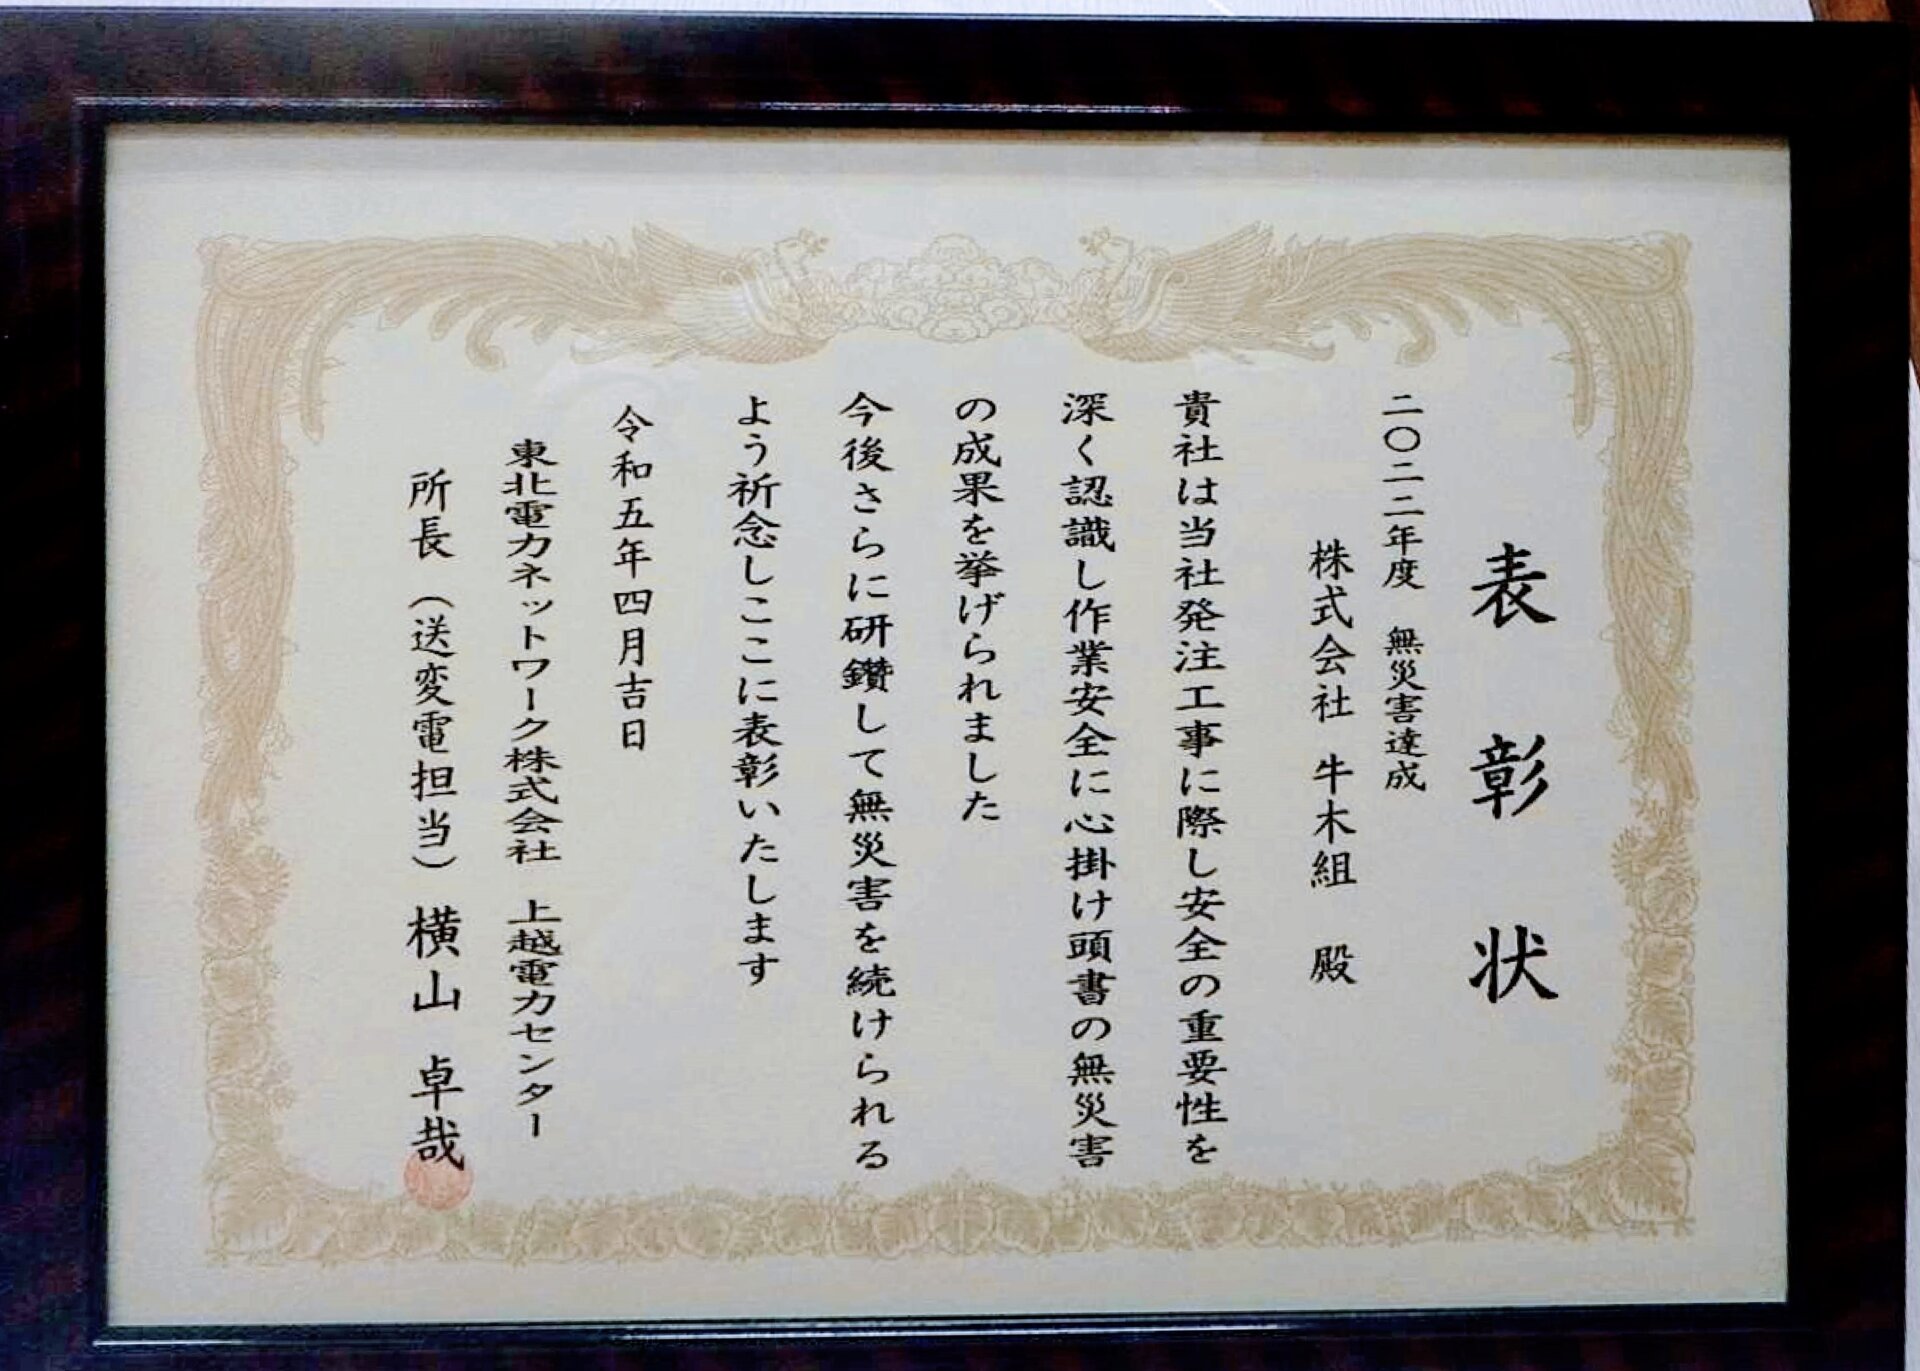 表彰状
二〇二二年度 無災害達成
株式会社 牛木組 殿
貴社は当社発注工事に際し安全の重要性を
深く認識し作業安全に心掛け頭書の無災害
の成果を挙げられました
今後さらに研鑽して無災害を続けられる
よう祈念しここに表彰いたします
令和五年四月吉日
東北電力ネットワーク株式会社 上越電力センター
所長（送変電担当）横山 卓哉